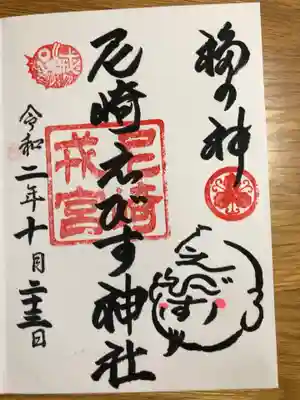 福の神
尼崎えびす神社
尼崎
戎宮
令和二年十月二十三日
えびす